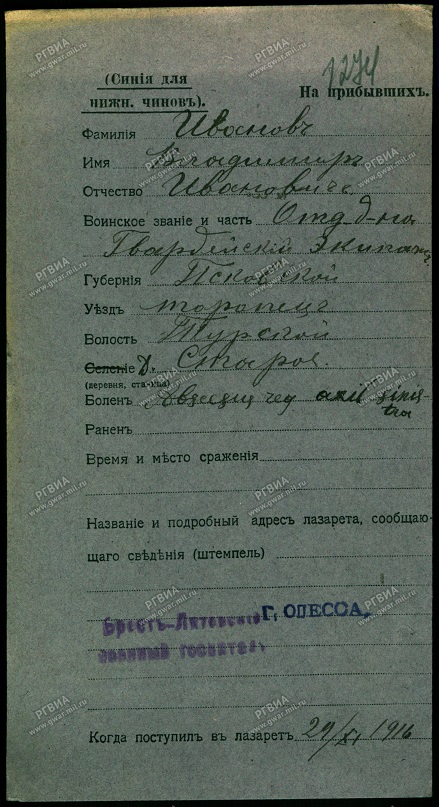 1274
(Синія для
нижн. чиновъ).
На прибывшихъ.
Фамилія Ивановъ
Имя Владимиръ
Отчество Ивановичъ
Воинское званіе и часть Отд. д-на
Гвардейскій Экипажъ
Губернія Псковской
Уѣздъ торопецъ
Волость Турской
Селеніе Д.
(деревня, станица)
Боленъ axil sinis-
tra
Раненъ
Время и мѣсто сраженія
Названіе и подробный адресъ лазарета, сообщаю-
щаго свѣдѣнія (штемпель)
Брестъ-Литовскій Г. ОДЕССА.
военный госпиталь
Когда поступилъ въ лазаретъ 29/XI 1916
РГВИА
www.gwar.mil.ru